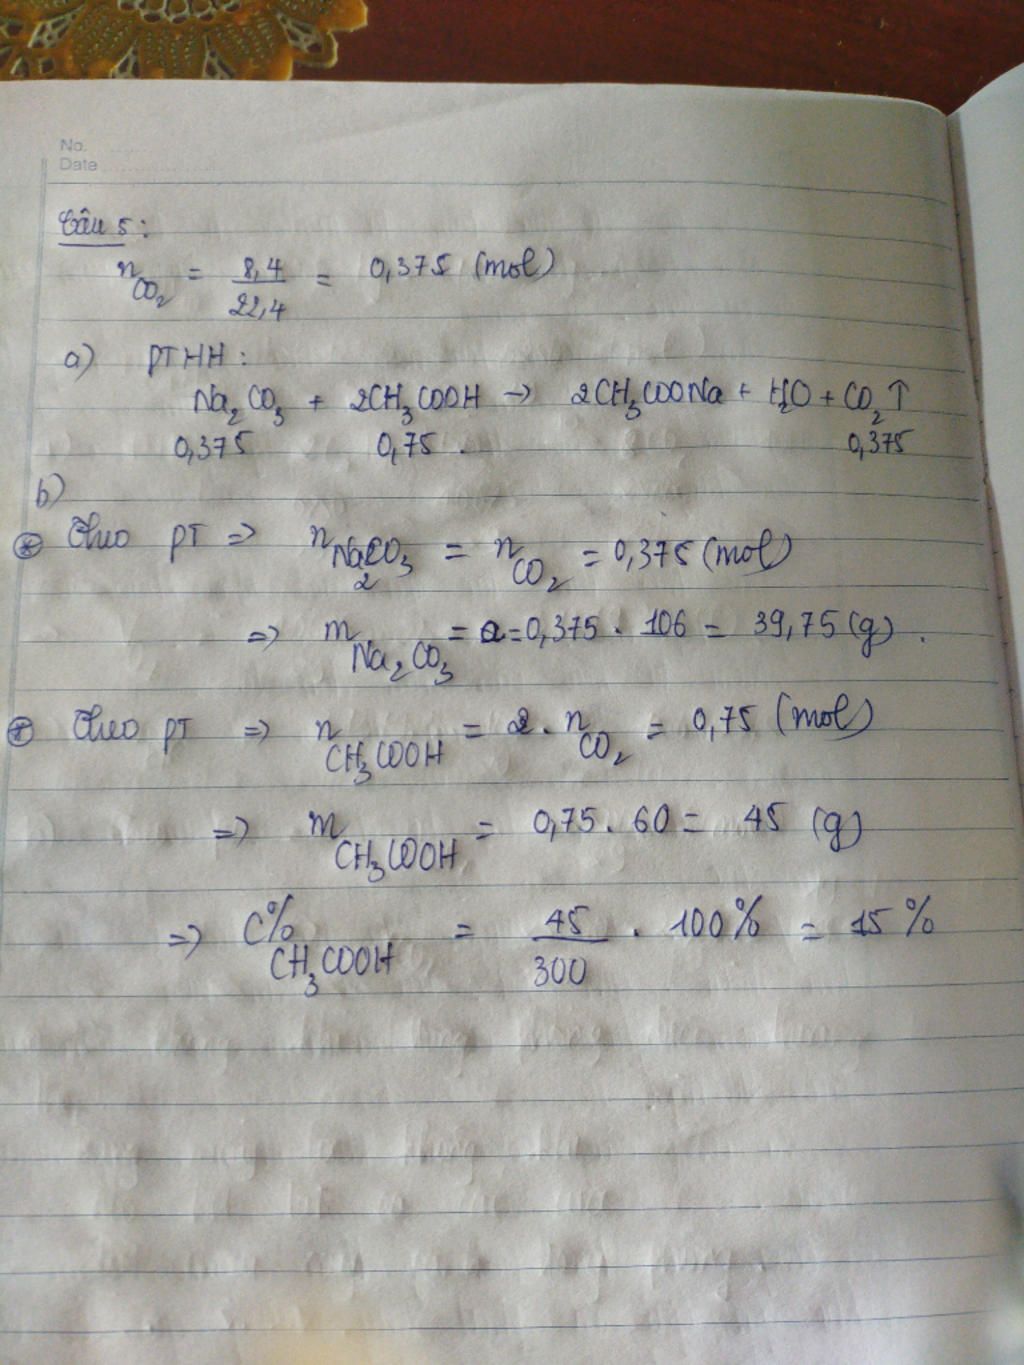 No.
Date
Câu 5:
n CO₂ = 8,4/22,4 = 0,375 (mol)
a) PTHH:
Na₂CO₃ + 2CH₃COOH → 2CH₃COONa + H₂O + CO₂↑
0,375 0,75 0,375
b)
* Theo PT => n Na₂CO₃ = n CO₂ = 0,375 (mol)
=> m Na₂CO₃ = a = 0,375 . 106 = 39,75 (g).
* Theo PT => n CH₃COOH = 2 . n CO₂ = 0,75 (mol)
=> m CH₃COOH = 0,75 . 60 = 45 (g)
=> C% CH₃COOH = 45/300 . 100% = 15%